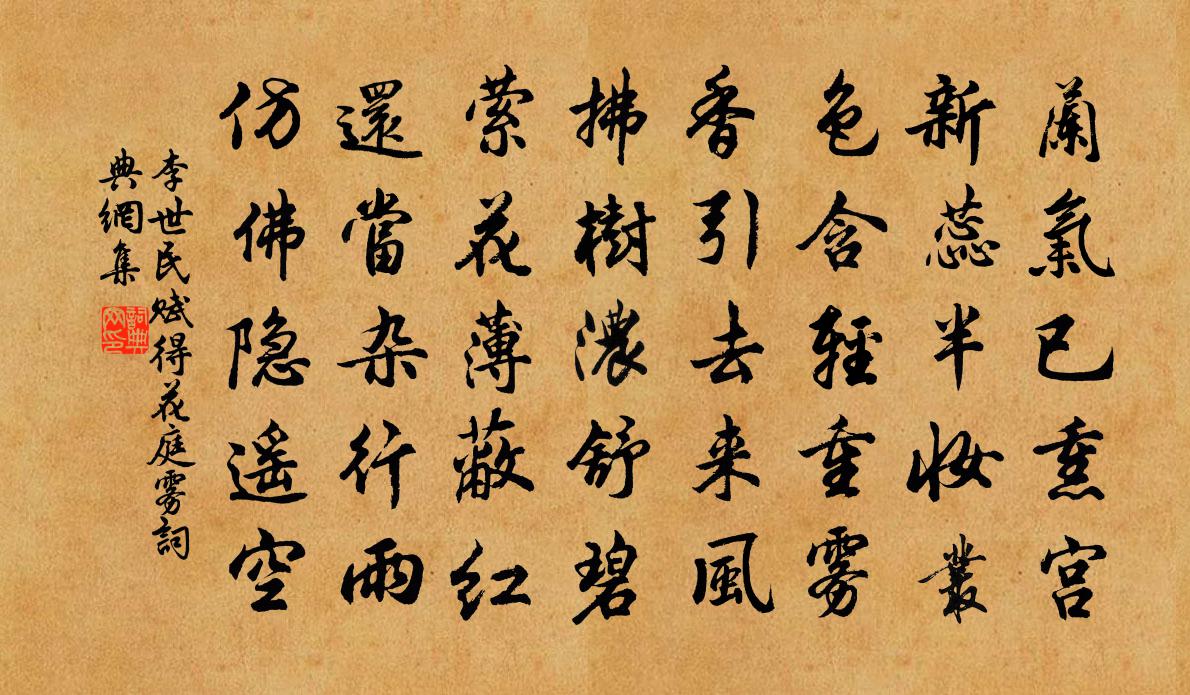 蘭氣已熏宫
新蕊半妆叢
色含輕重雾
香引去来風
拂樹濃舒碧
萦花薄蔽红
還當杂行雨
仿佛隐遥空
李世民赋得花庭雾詞
典網集
詞典
网印